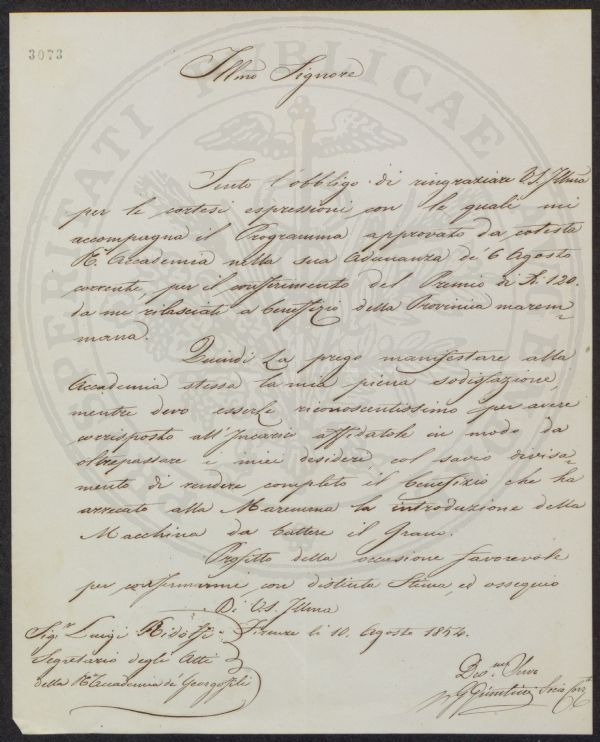 3073
Illmo Signore
Sento l'obbligo di ringraziare V.S. Illma
per le cortesi espressioni con le quali mi
accompagna il Programma approvato da cotesta
Rl. Accademia nella sua Adunanza de' 6 Agosto
corrente, per il conferimento del Premio di £. 120.
da me rilasciate a benefizio della Provincia marem=
mana.
Quindi La prego manifestare alla
Accademia stessa la mia piena sodisfazione,
mentre devo esserle riconoscentissimo per avere
corrisposto all'Incarico affidatole in modo da
oltrepassare i miei desiderj, col savio divisa=
mento di rendere completo il benefizio che ha
arrecato alla Maremma la introduzione della
Macchina da battere il Grano.
Profitto della occasione favorevole
per confermarmi, con distinta Stima, ed ossequio
Di V.S. Illma
Sigr. Luigi Ridolfi
Segretario degli Atti
della Rl. Accademia dei Georgofili
Firenze li 10. Agosto 1854.
Devmo. Servo
Socio Corre.
PROSPERITATI PUBLICAE